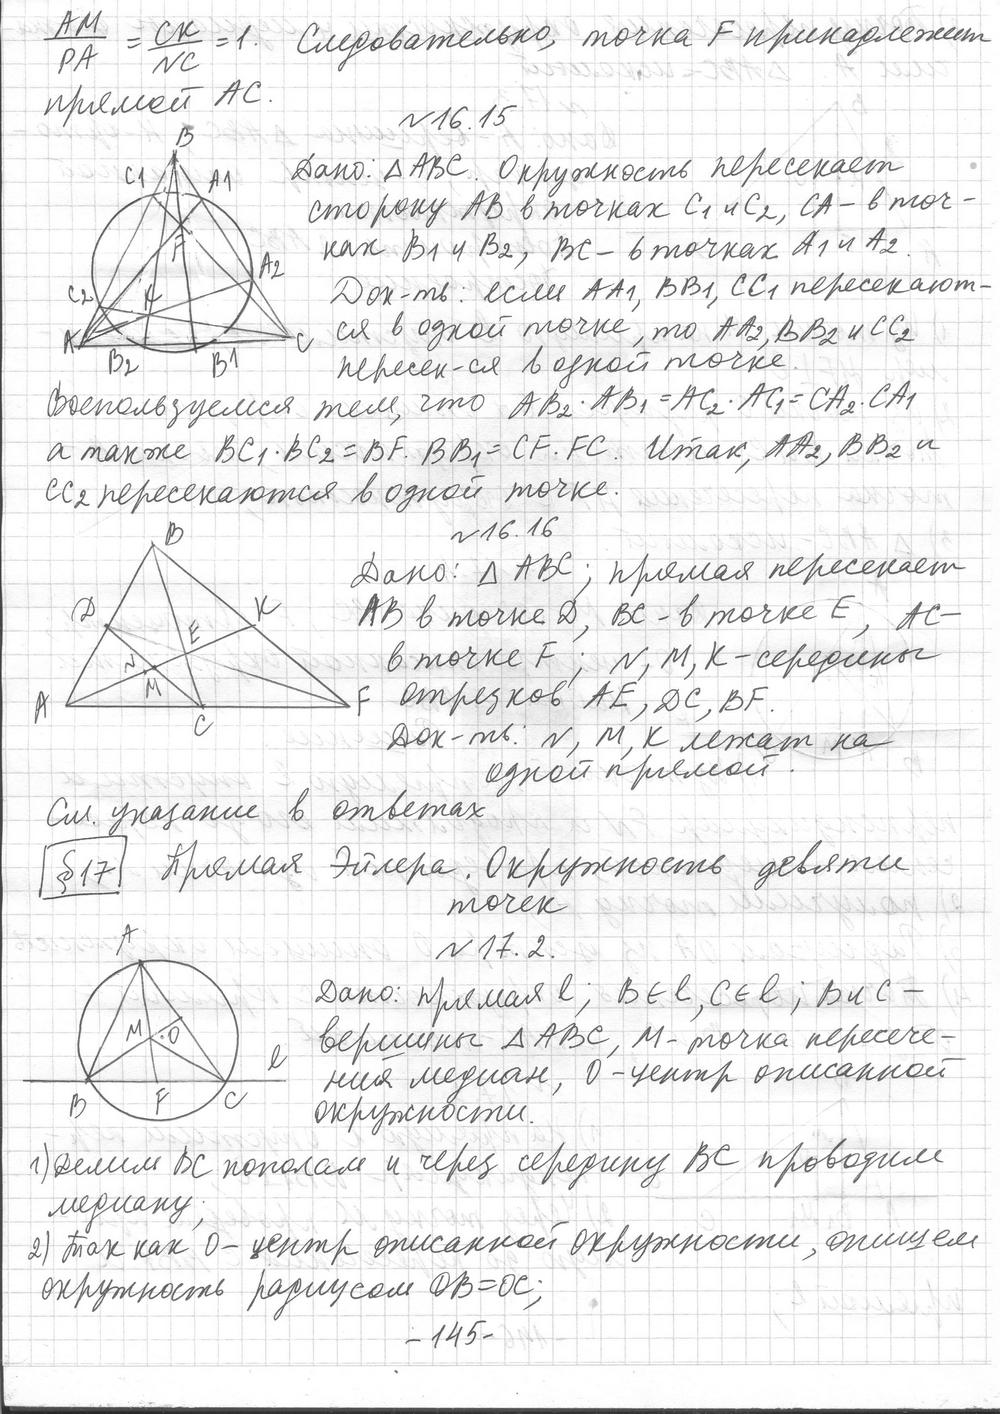 AM/PA = CK/NC = 1. Следовательно, точка F принадлежит
прямой AC.
№16.15
B
C1
A1
F
A2
C2
K
A
C
B2
B1
Дано: △ABC. Окружность пересекает
сторону AB в точках C1 и C2, CA – в точ-
ках B1 и B2, BC – в точках A1 и A2.
Док-ть: если AA1, BB1, CC1 пересекают-
ся в одной точке, то AA2, BB2 и CC2
пересек-ся в одной точке.
Воспользуемся тем, что AB2·AB1=AC2·AC1=CA2·CA1
а также BC1·BC2=BF·BB1=CF·FC. Итак, AA2, BB2 и
CC2 пересекаются в одной точке.
№16.16
B
D
K
E
N
M
A
C
F
Дано: △ABC; прямая пересекает
AB в точке D, BC – в точке E, AC –
в точке F; N, M, K – середины
отрезков AE, DC, BF.
Док-ть: N, M, K лежат на
одной прямой.
См. указание в ответах
§17 Прямая Эйлера. Окружность девяти
точек
№17.2.
A
M
O
l
B
F
C
Дано: прямая l; B∈l, C∈l; B и C –
вершины △ABC, M – точка пересече-
ния медиан, O – центр описанной
окружности.
1) Делим BC пополам и через середину BC проводим
медиану;
2) Так как O – центр описанной окружности, опишем
окружность радиусом OB=OC;
-145-